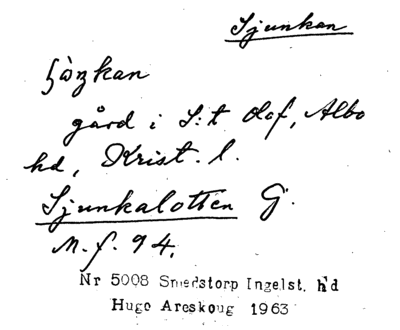 Sjunkan
ʃàŋkan
gård i S:t Olof, Albo
hd, Krist. l.
Sjunkalotten G.
M.f. 94.
Nr 5008 Smedstorp Ingelst. hd
Hugo Areskoug 1963